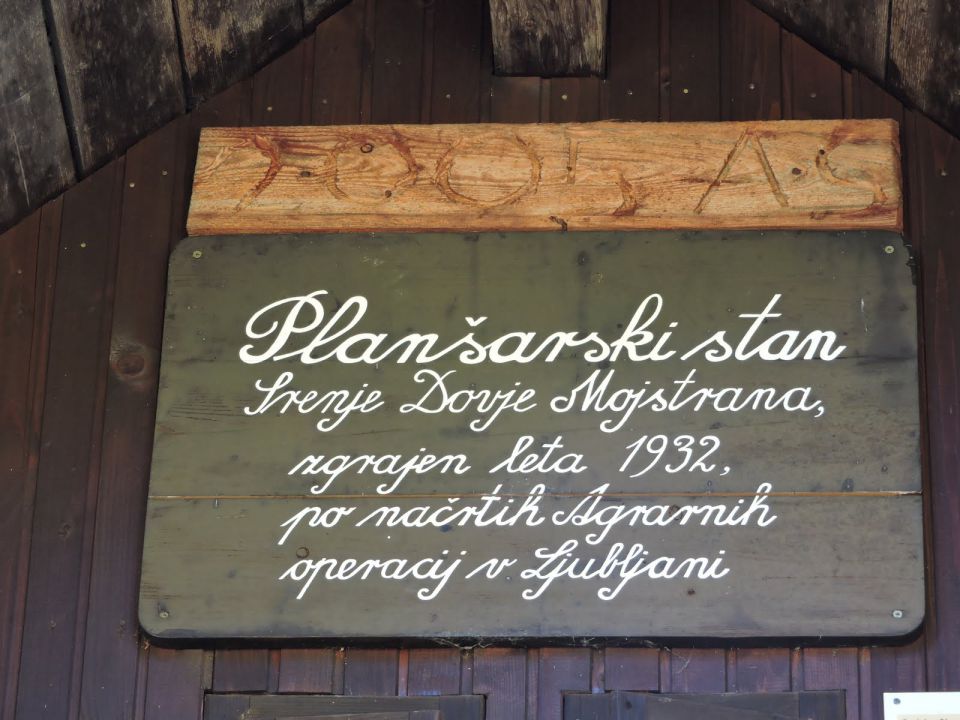 2005 A.S
Planšarski stan
Srenje Dovje Mojstrana,
zgrajen leta 1932,
po načrtih Agrarnih
operacij v Ljubljani